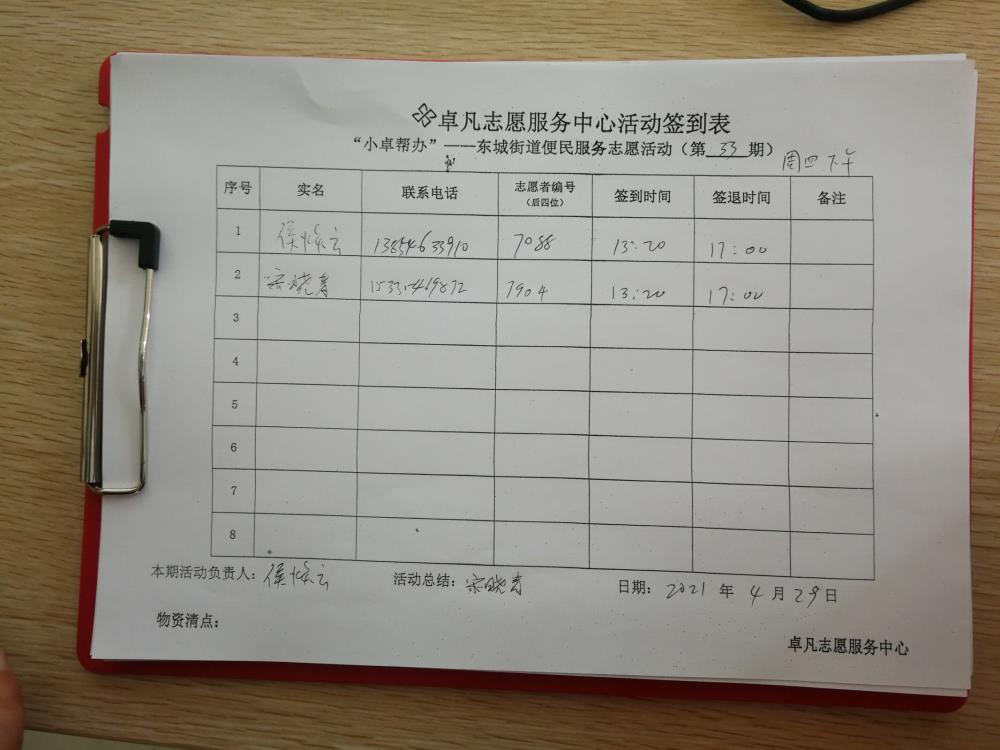 卓凡志愿服务中心活动签到表
“小卓帮办”——东城街道便民服务志愿活动（第 33 期）
周四下午
序号 实名 联系电话 志愿者编号（后四位） 签到时间 签退时间 备注
1 侯焕云 13854633910 7088 13:20 17:00
2 宋晓青 15315469872 7904 13:20 17:00
3
4
5
6
7
8
本期活动负责人：侯焕云 活动总结：宋晓青 日期：2021 年 4 月 29 日
物资清点：
卓凡志愿服务中心